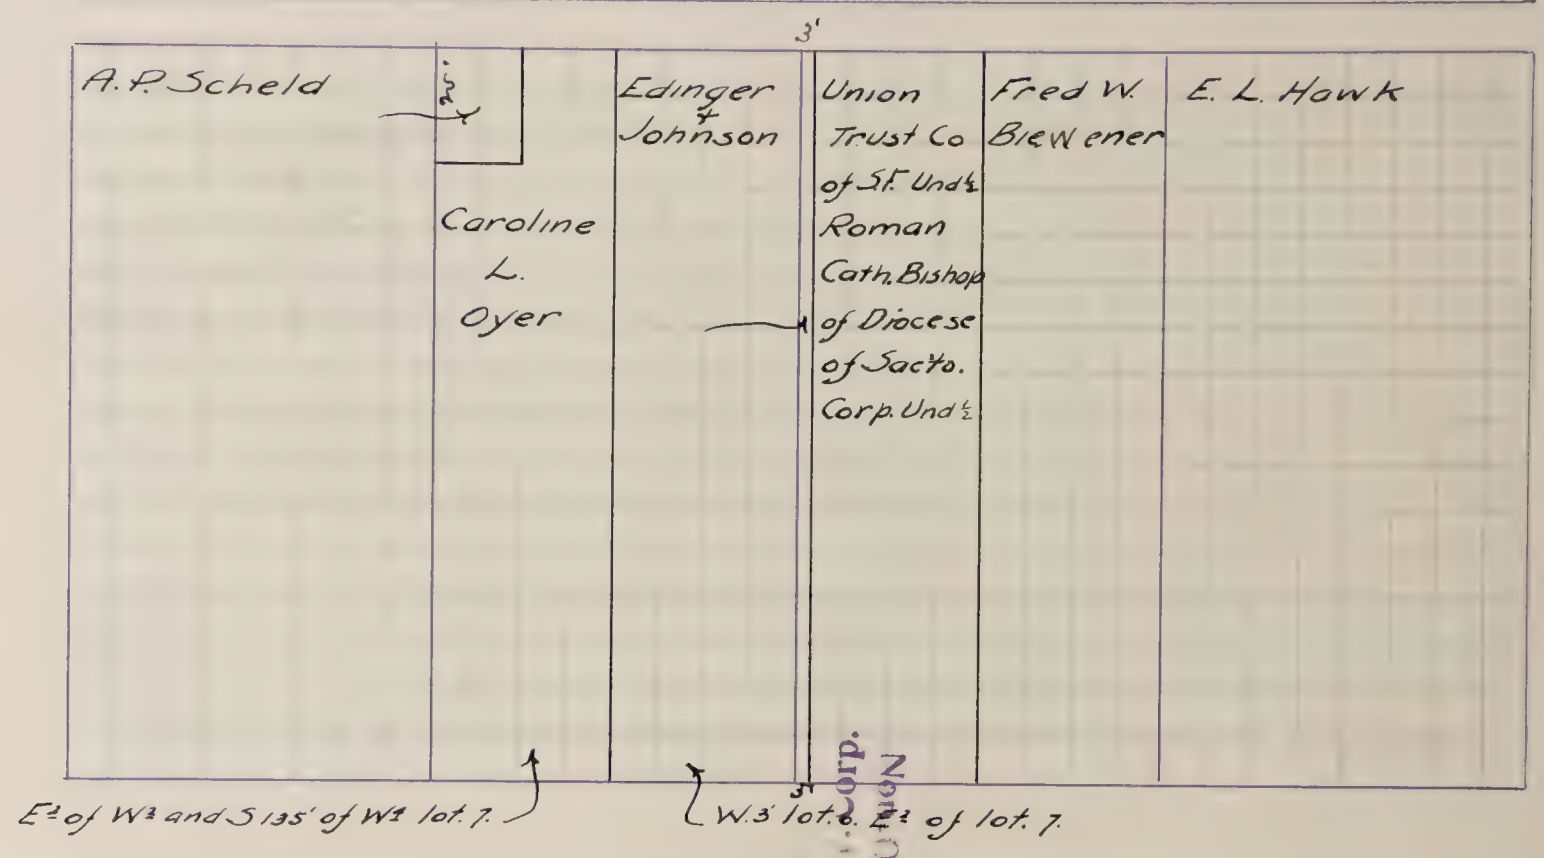 3'
A. P. Scheld
Edinger
+
Johnson
Union
Trust Co
of S.F. Und ½
Roman
Cath. Bishop
of Diocese
of Sacto.
Corp. Und ½
Fred W.
Biewener
E. L. Hawk
Caroline
L.
Oyer
3'
E½ of W½ and S 135' of W¼ lot. 7.
W. 3' lot. 6. E½ of lot. 7.
Corp.